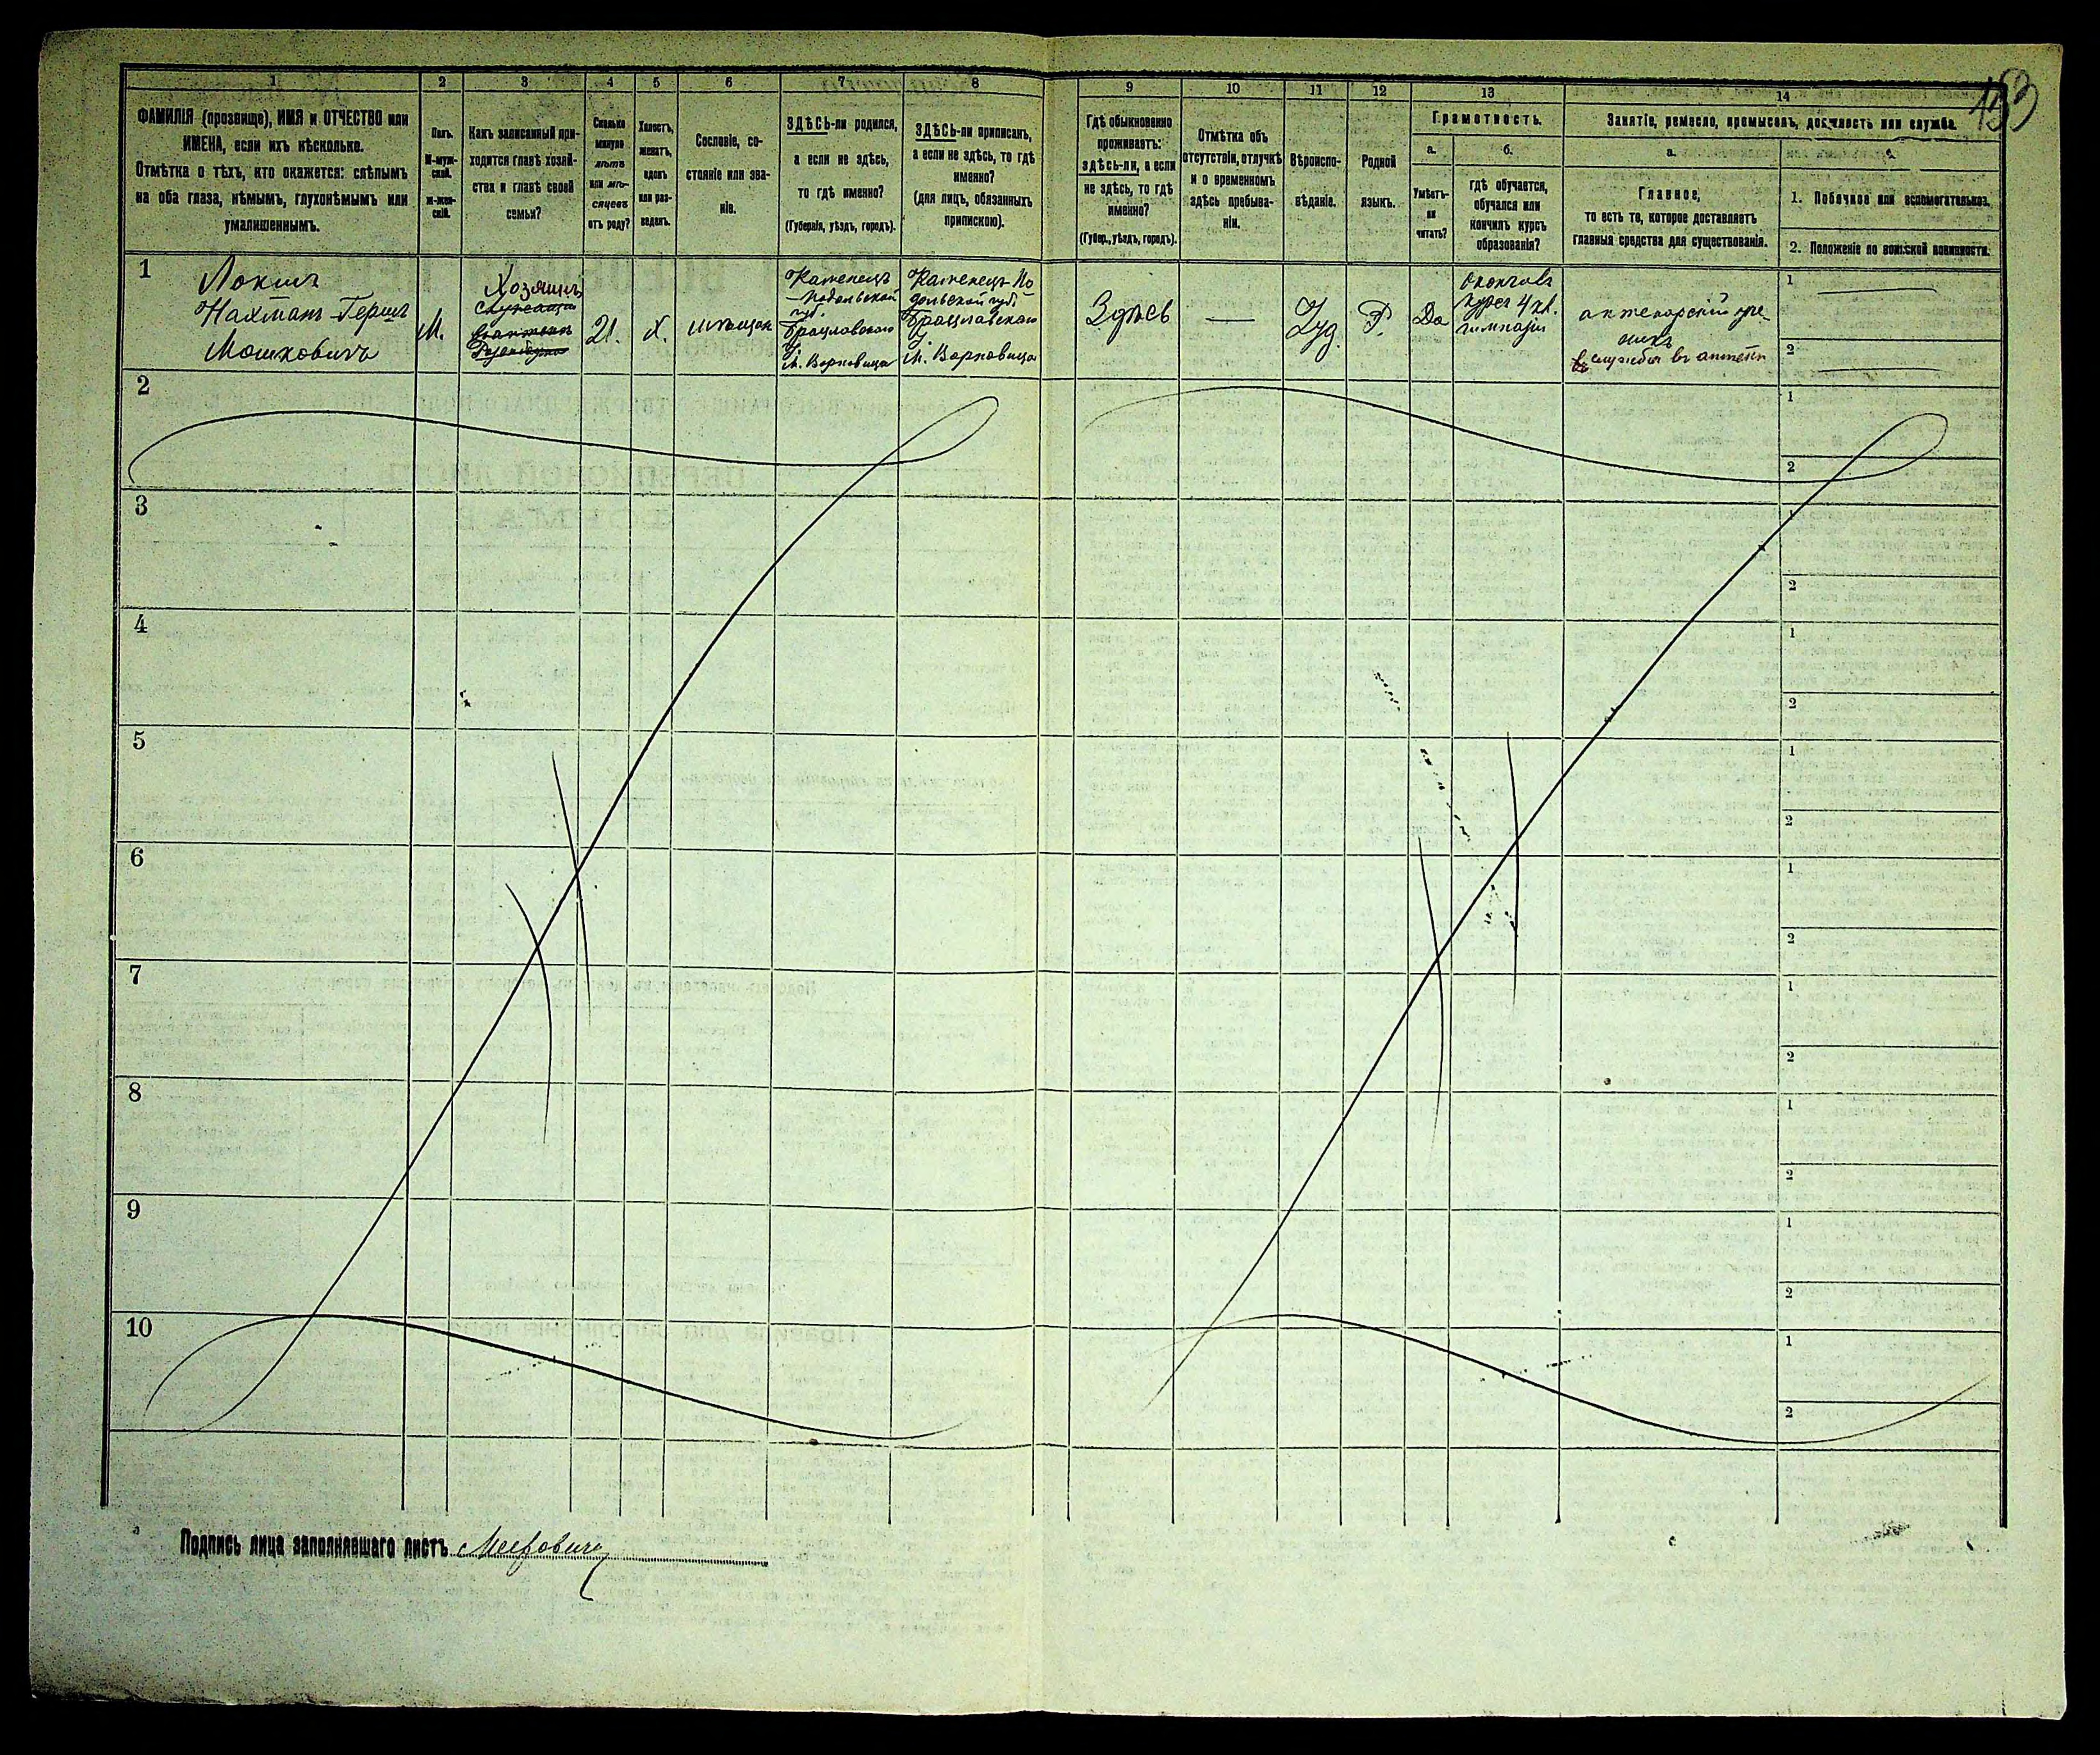 153
1
2
3
4
5
6
7
8
9
10
11
12
13
14
ФАМИЛІЯ (прозвище), ИМЯ и ОТЧЕСТВО или
ИМЕНА, если ихъ нѣсколько.
Отмѣтка о тѣхъ, кто окажется: слѣпымъ
на оба глаза, нѣмымъ, глухонѣмымъ или
умалишеннымъ.
Полъ.
М-муж-
ской.
ж-жен-
скій.
Какъ записанный при-
ходится главѣ хозяй-
ства и главѣ своей
семьи?
Сколько
минуло
лѣтъ
или мѣ-
сяцевъ
отъ роду?
Холостъ,
женатъ,
вдовъ
или раз-
веденъ.
Сословіе, со-
стояніе или зва-
ніе.
ЗДѢСЬ-ли родился,
а если не здѣсь,
то гдѣ именно?
(Губернія, уѣздъ, городъ).
ЗДѢСЬ-ли приписанъ,
а если не здѣсь, то гдѣ
именно?
(для лицъ, обязанныхъ
припискою).
Гдѣ обыкновенно
проживаетъ:
здѣсь-ли, а если
не здѣсь, то гдѣ
именно?
(Губер., уѣздъ, городъ).
Отмѣтка объ
отсутствіи, отлучкѣ
и о временномъ
здѣсь пребыва-
ніи.
Вѣроиспо-
вѣданіе.
Родной
языкъ.
Грамотность.
а.
Умѣетъ-
ли
читать?
б.
гдѣ обучается,
обучался или
кончилъ курсъ
образованія?
Занятіе, ремесло, промыселъ, должность или служба.
а.
Главное,
то есть то, которое доставляетъ
главныя средства для существованія.
1. Побочное или вспомогательное.
2. Положеніе по воинской повинности.
1
Локшъ
Нахманъ-Гершъ
Мошковичъ
М.
Хозяинъ
21.
Х.
мѣщан
Каменецъ
-Подольской
губ.
Брацлавского
У.
м. Вороновица
Каменецъ По
дольской губ.
Брацлавского
У.
м. Вороновица
Здѣсь
—
Іуд.
Р.
Да
Окончилъ
курсъ 4 кл.
гимназіи
аптекарскій уче-
никъ
служба въ аптекѣ
1
2
2
1
2
3
1
2
4
1
2
5
1
2
6
1
2
7
1
2
8
1
2
9
1
2
10
1
2
Подпись лица заполнявшаго листъ